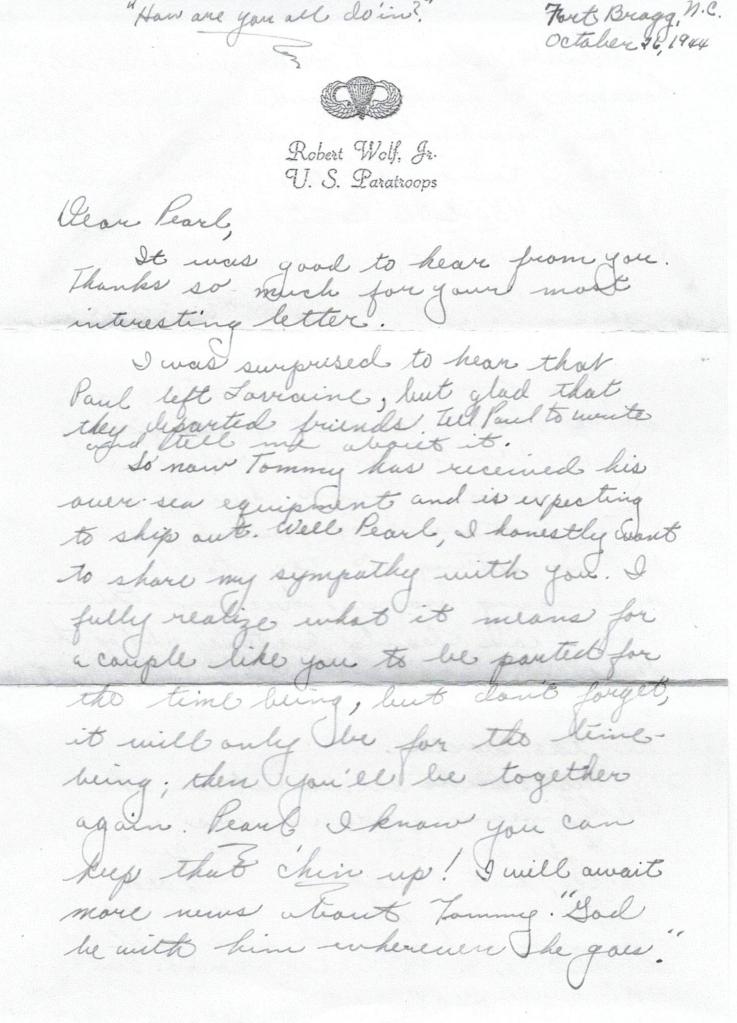 "How are you all do'in?"
Fort Bragg, N.C.
October 26, 1944
Robert Wolf, Jr.
U. S. Paratroops
Dear Pearl,
It was good to hear from you.
Thanks so much for your most
interesting letter.
I was surprised to hear that
Paul left Lorraine, but glad that
they departed friends. Tell Paul to write
and tell me about it.
So now Tommy has received his
over-sea equipment and is expecting
to ship out. Well Pearl, I honestly want
to share my sympathy with you. I
fully realize what it means for
a couple like you to be parted for
the time being, but don't forget,
it will only be for the time-
being; then you'll be together
again. Pearl I know you can
keep that chin up! I will await
more news about Tommy. "God
be with him wherever he goes."